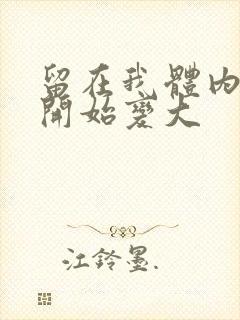 留在我體內
開始變大
江鈴墨.